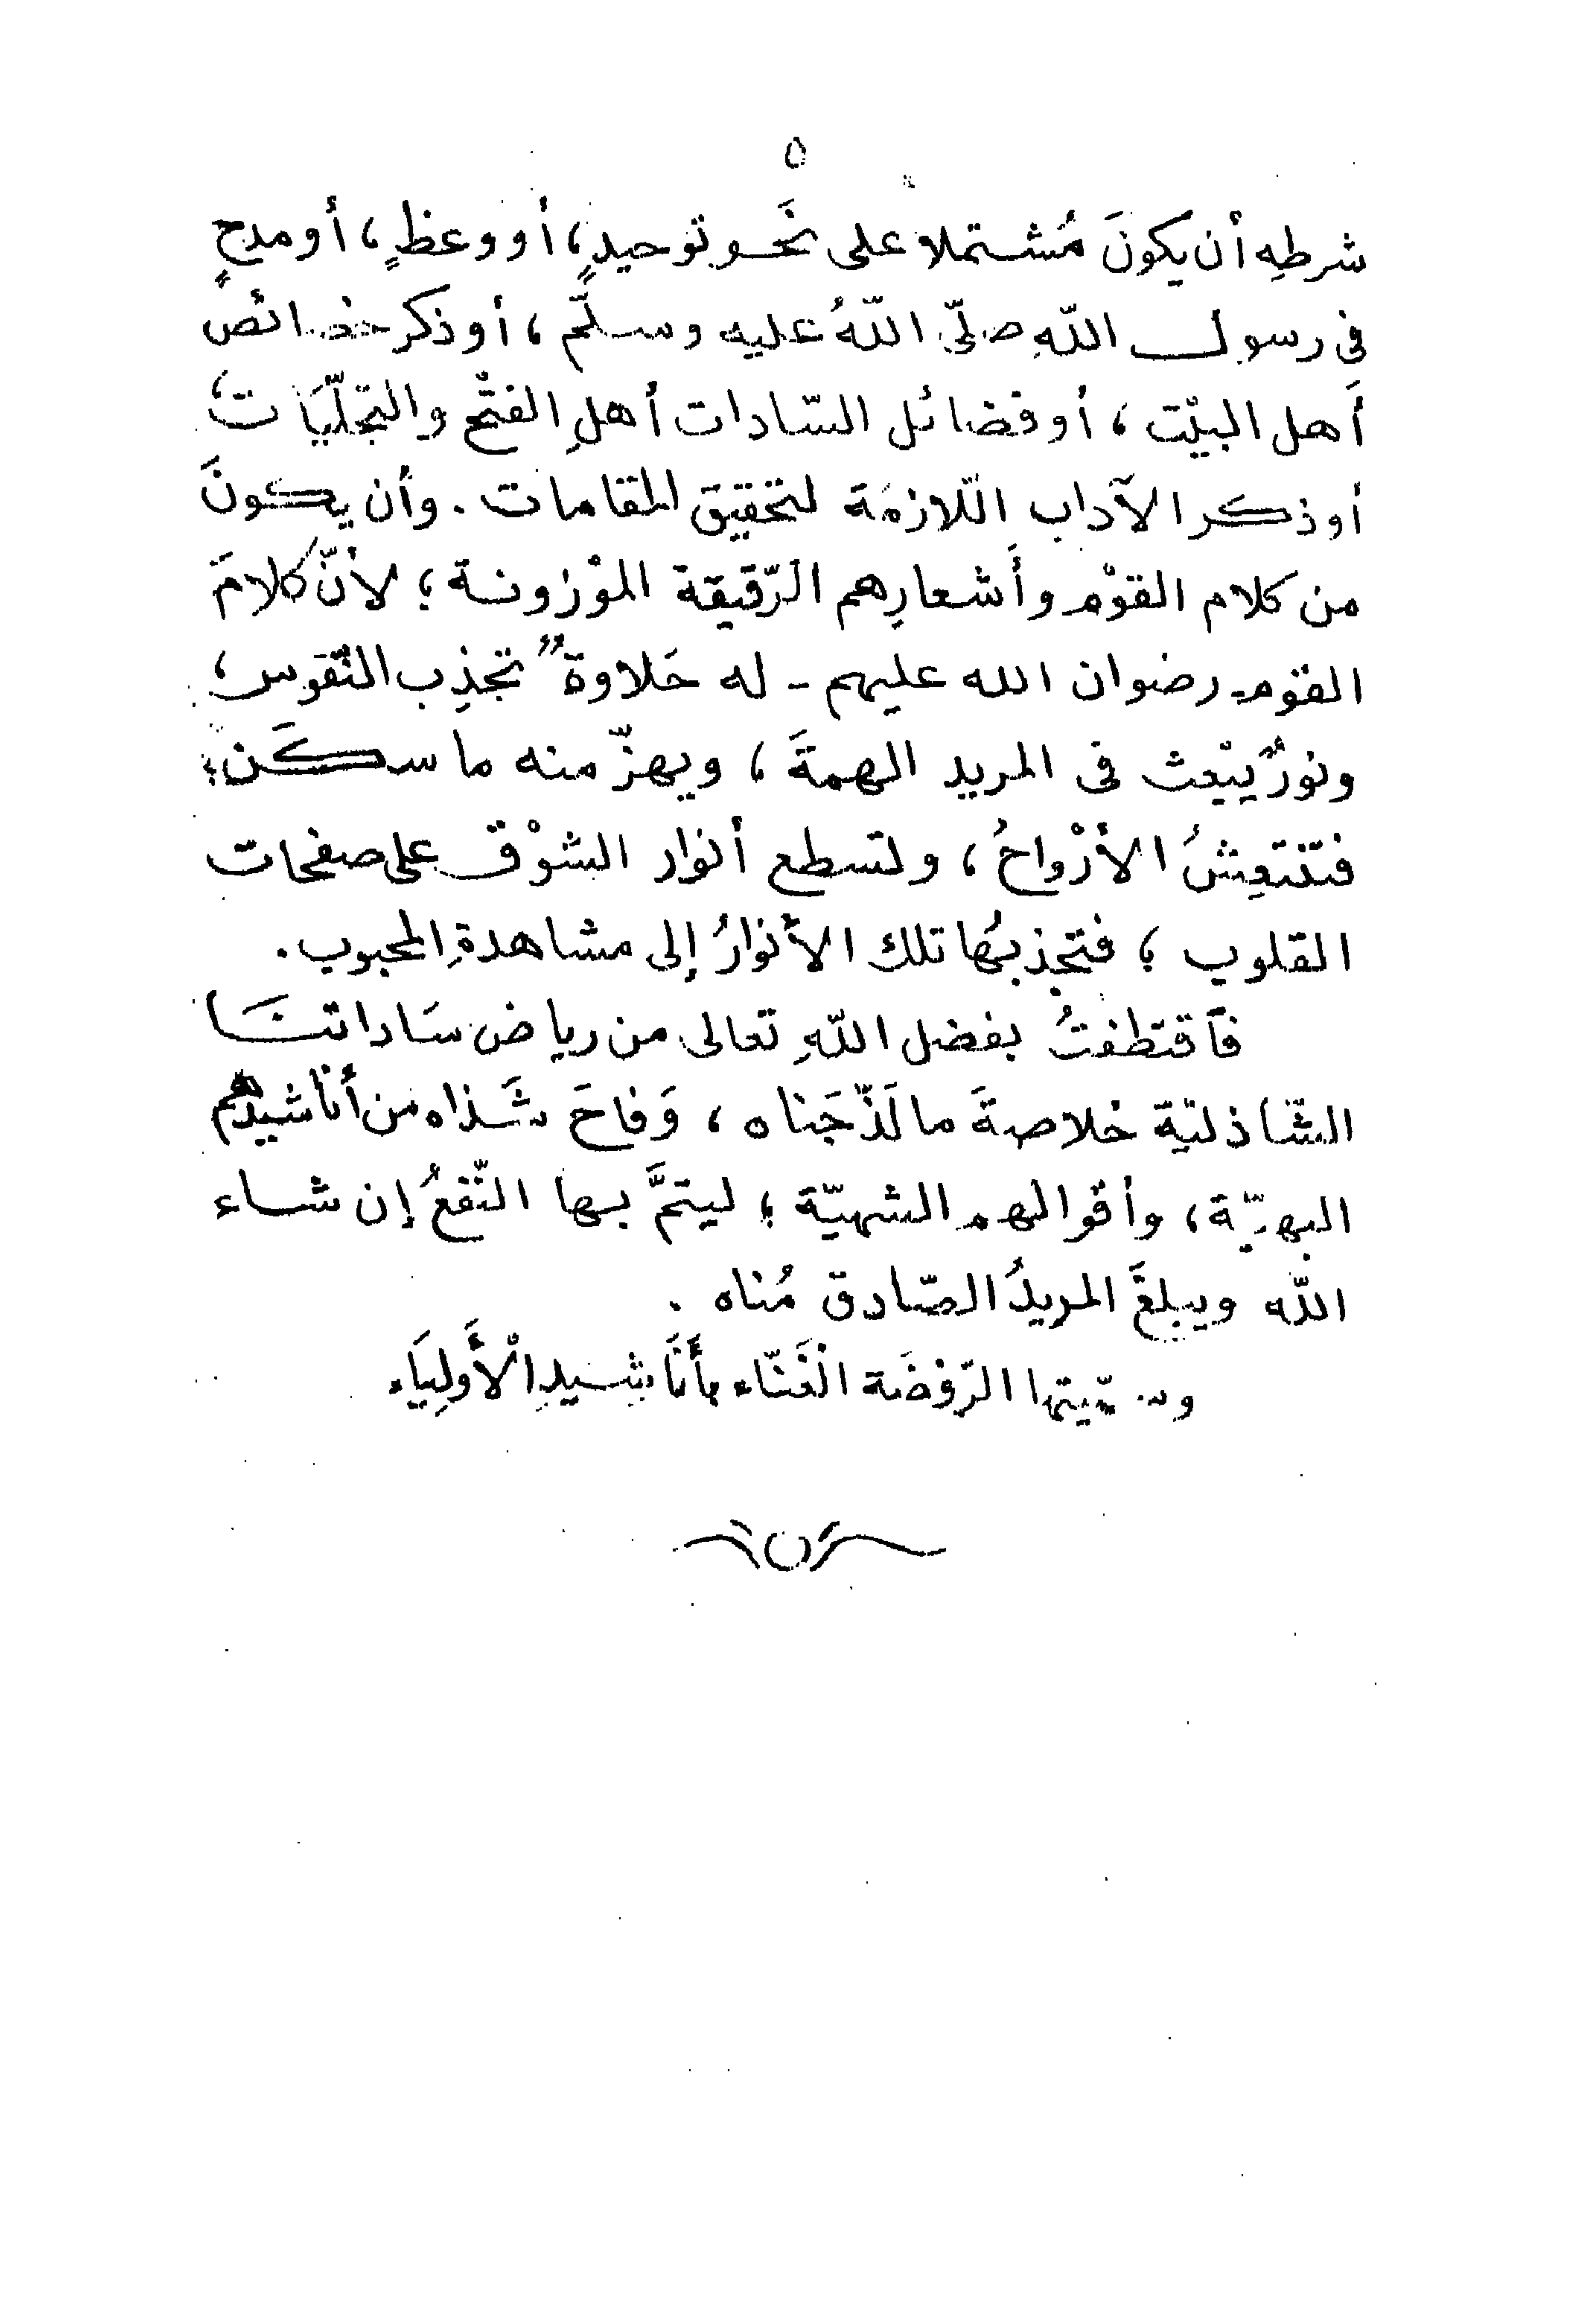 ٥
شرطهِ أن يكونَ مُشتملا على نَحو توحيدٍ، أو وعظٍ، أو مدحٍ
في رسول اللّهِ صلّى اللّهُ عليه وسلّم، أو ذكر خصائص
أَهل البيْت، أو فضائل السّادات أهلِ الفتْح والتجلّيَات،
أو ذكر الآداب اللّازمَة لتحقيق المقامات. وأن يكونَ
من كلام القوْم وأَشعارِهم الرّقيقة الموْزونة؛ لأنّ كلامَ
القوْم - رضوان الله عليهم - له حَلاوةٌ تجذِب النّفوس،
ونورٌ يَبْعث في المريد الهمةَ، ويهزّ منه ما سكَن؛
فتنتعِشُ الأرْواحُ، وتسطع أنوار الشوْق على صفحات
القلوب؛ فتجذبُها تلك الأنوارُ إلى مشاهدةِ المحبوب.
فاقتطفتُ بفضل اللّهِ تعالى من رياض سَاداتنَا
الشّاذليّة خلاصةَ ما لَذّ جَناه، وَفاحَ شَذاه من أناشيدهم
البهيّة، وأقوالهم الشهيّة؛ ليتمَّ بها النّفعُ إن شاء
اللّه ويبلغَ المريدُ الصّادق مُناه.
وسمّيتها الرّوضَة الغَنّاء بأَنَاشيدِ الْأَولِيَاء